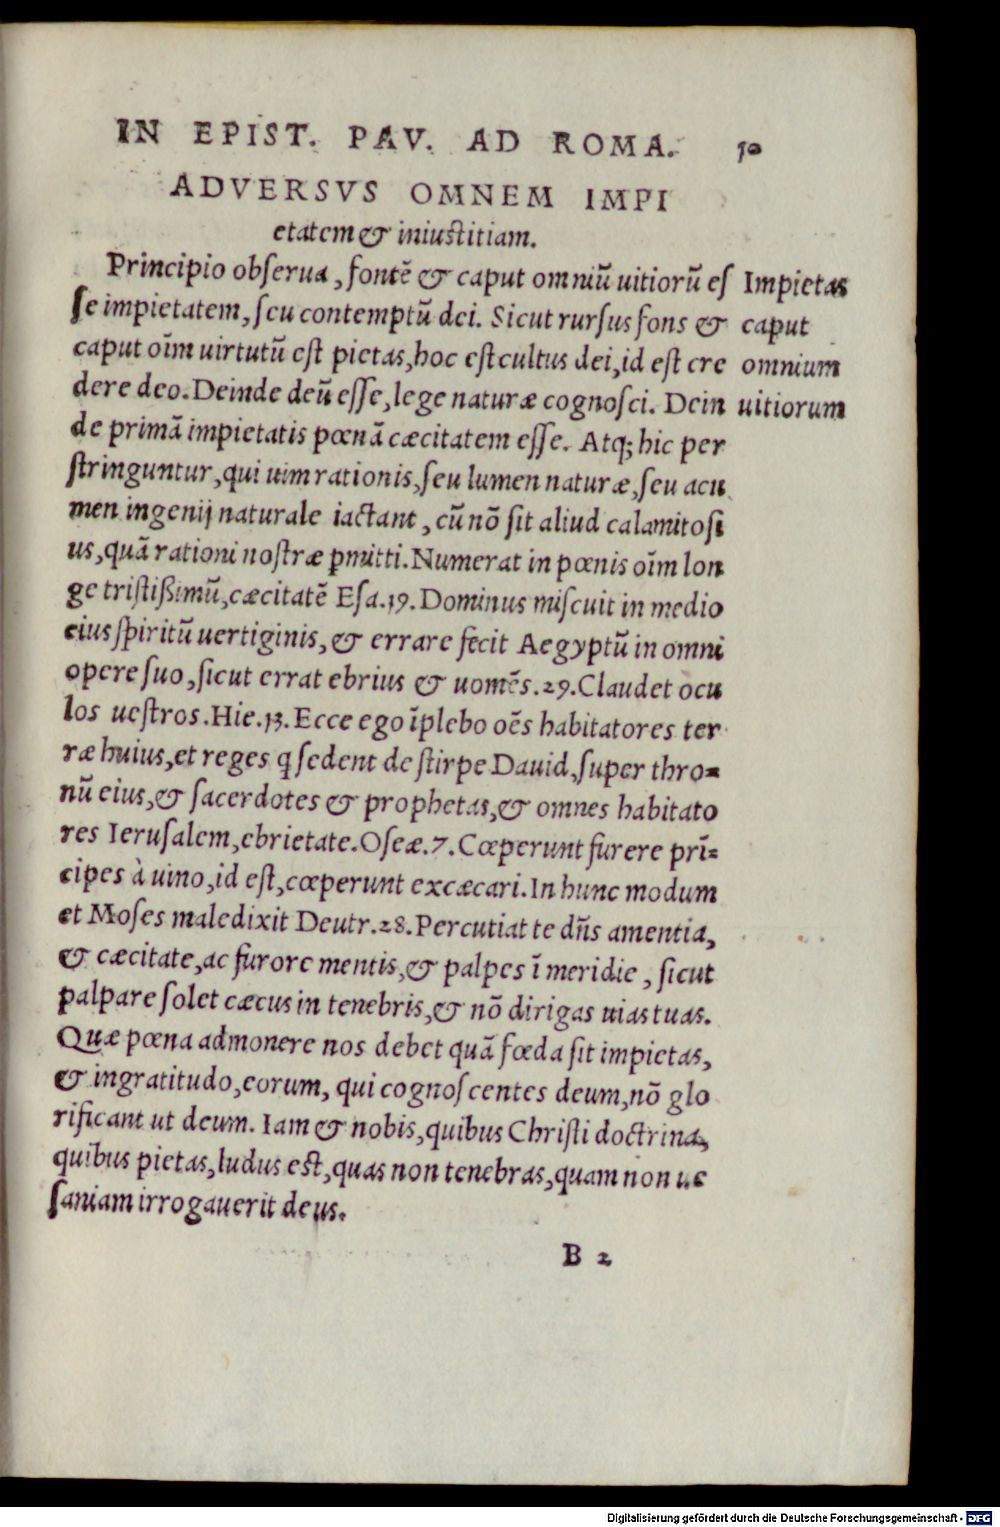 IN EPIST. PAV. AD ROMA. 10
ADVERSVS OMNEM IMPI
etatem & iniustitiam.
Principio obserua, fontẽ & caput omniũ uitiorũ es
se impietatem, seu contemptũ dei. Sicut rursus fons &
caput oĩm uirtutũ est pietas, hoc est cultus dei, id est cre
dere deo. Deinde deũ esse, lege naturæ cognosci. Dein
de primã impietatis pœnã cæcitatem esse. Atq; hic per
stringuntur, qui uim rationis, seu lumen naturæ, seu acu
men ingenij naturale iactant, cũ nõ sit aliud calamitosi
us, quã rationi nostræ ꝑmitti. Numerat in pœnis oĩm lon
ge tristißimũ, cæcitatẽ Esa.19. Dominus miscuit in medio
eius spiritũ uertiginis, & errare fecit Aegyptũ in omni
opere suo, sicut errat ebrius & uomẽs. 29. Claudet ocu
los uestros. Hie.13. Ecce ego ĩplebo oẽs habitatores ter
ræ huius, et reges q̃ sedent de stirpe Dauid, super thro=
nũ eius, & sacerdotes & prophetas, & omnes habitato
res Ierusalem, ebrietate. Oseæ.7. Cœperunt furere prĩ=
cipes à uino, id est, cœperunt excæcari. In hunc modum
et Moses maledixit Deutr.28. Percutiat te dñs amentia,
& cæcitate, ac furore mentis, & palpes ĩ meridie, sicut
palpare solet cæcus in tenebris, & nõ dirigas uias tuas.
Quæ pœna admonere nos debet quã fœda sit impietas,
& ingratitudo, eorum, qui cognoscentes deum, nõ glo
rificant ut deum. Iam & nobis, quibus Christi doctrina,
quibus pietas, ludus est, quas non tenebras, quam non ue
saniam irrogauerit deus.
B 2
Impietas
caput
omnium
uitiorum
Digitalisierung gefördert durch die Deutsche Forschungsgemeinschaft - DFG